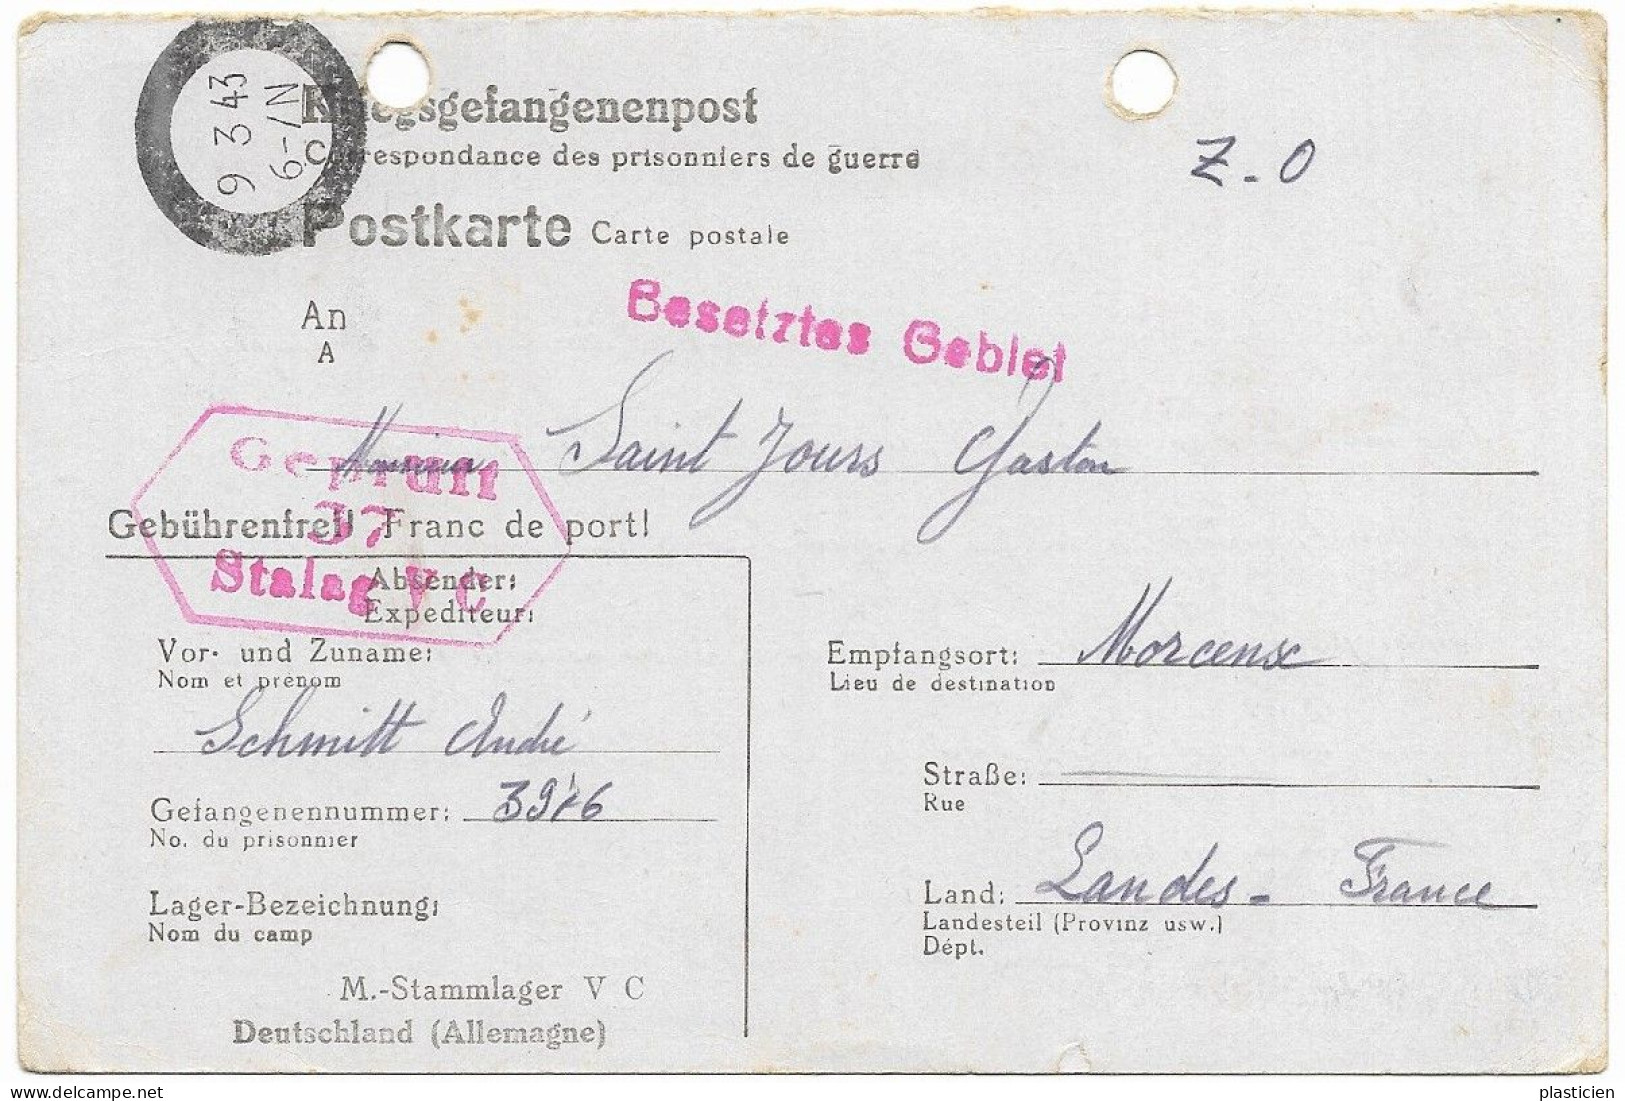 9 3 43
6-7N
Kriegsgefangenenpost
Correspondance des prisonniers de guerre
Z.O
Postkarte Carte postale
Besetztes Gebiet
An
A
Monsieur Saint Jours Gaston
Geprüft
37
Stalag V C
Gebührenfrei! Franc de port!
Absender:
Expediteur:
Vor- und Zuname:
Nom et prénom
Schmitt André
Gefangenennummer:
No. du prisonnier
Lager-Bezeichnung:
Nom du camp
M.-Stammlager V C
Deutschland (Allemagne)
Empfangsort: Morcenx
Lieu de destination
Straße:
Rue
Land: Landes - France
Landesteil (Provinz usw.)
Dépt.
delcampe.net
plasticien